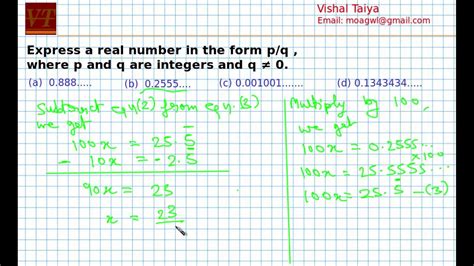 VT
Vishal Taiya
Email: moagwl@gmail.com
Express a real number in the form p/q ,
where p and q are integers and q ≠ 0.
(a) 0.888..... (b) 0.2555.... (c) 0.001001....... (d) 0.1343434.....
Subtract eqn(2) from eqn.(3)
we get
100x = 25.5̅
- 10x = -2.5̅
90x = 23
x = 23
Multiply by 100,
we get
100x = 0.2555...
×100
100x = 25.5555...
100x = 25.5̅ —(3)